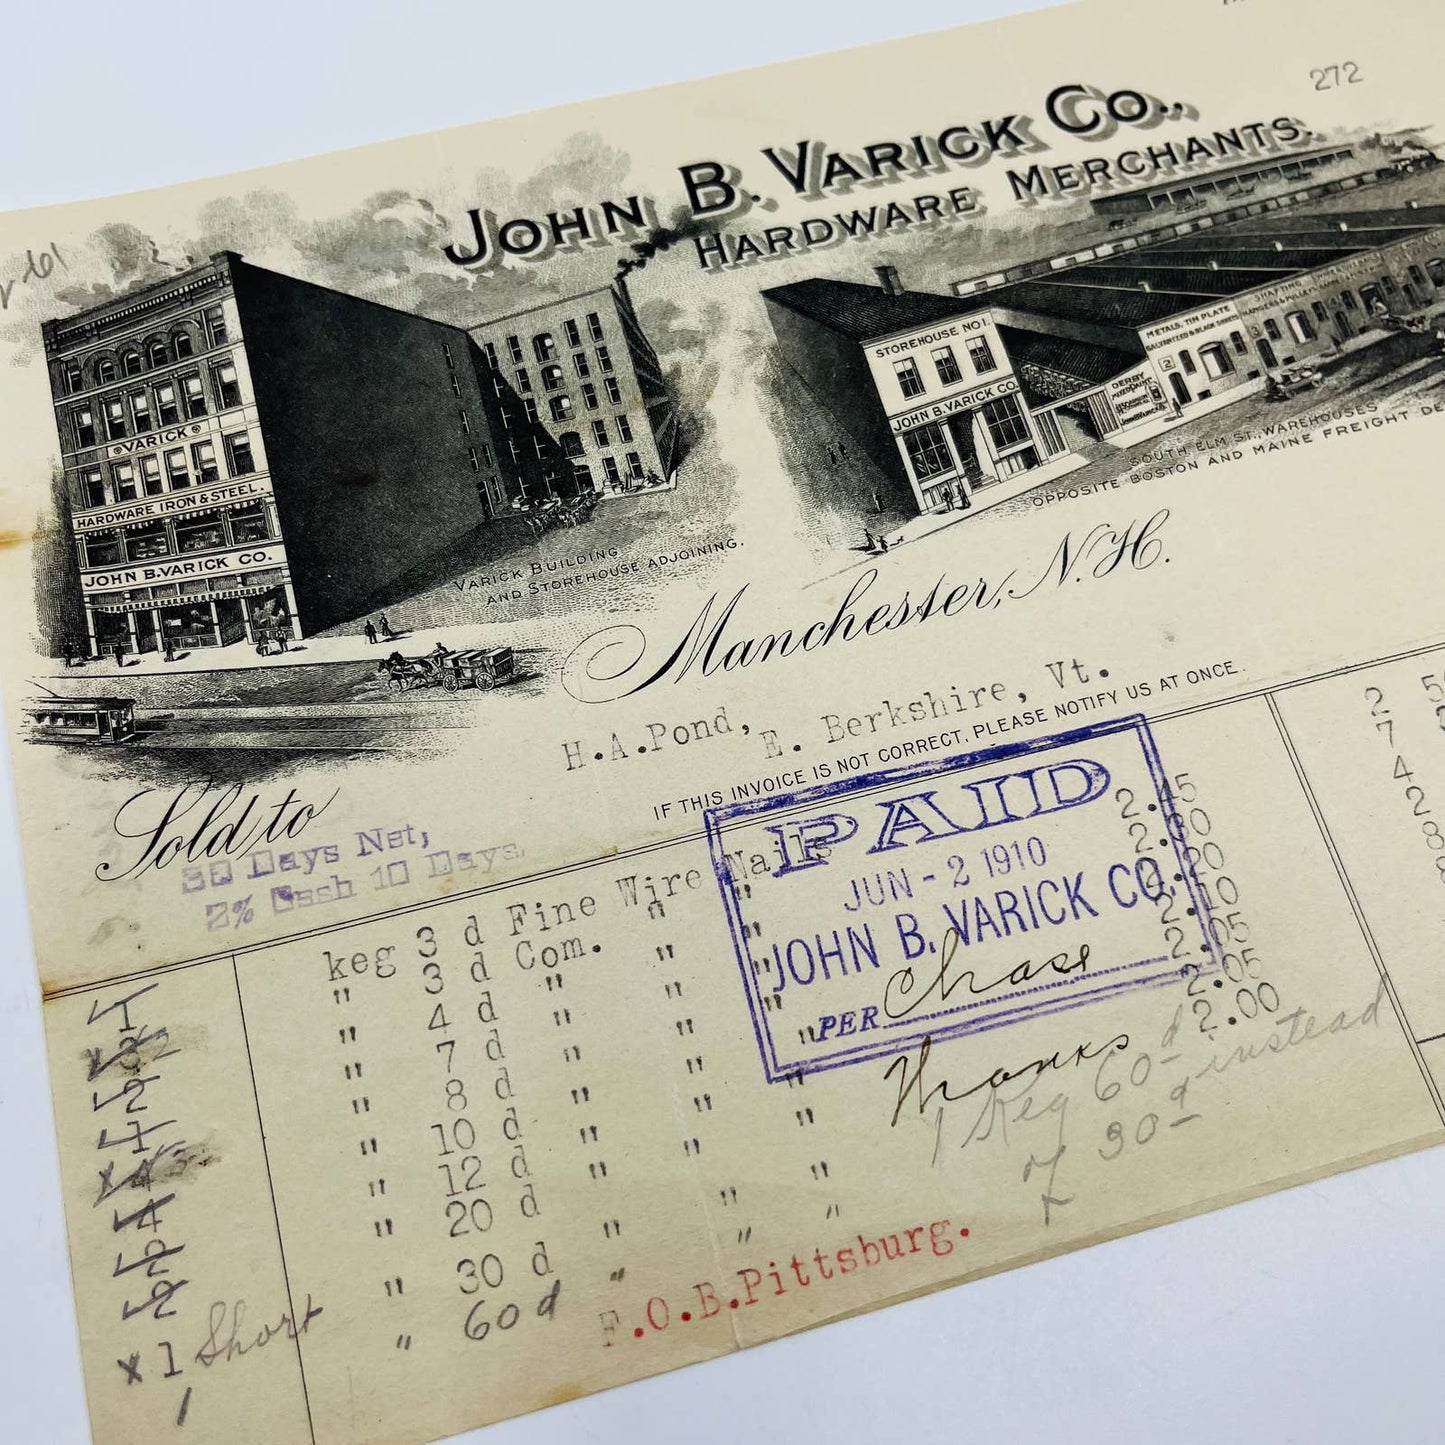 272
JOHN B. VARICK CO.,
HARDWARE MERCHANTS.
VARICK
HARDWARE IRON & STEEL.
JOHN B. VARICK CO.
VARICK BUILDING
AND STOREHOUSE ADJOINING.
STOREHOUSE NO 1.
JOHN B. VARICK CO.
DERBY
METALS, TIN PLATE
GALVANIZED & BLACK
SHAFTING
2
3
SOUTH ELM ST., WAREHOUSES
OPPOSITE BOSTON AND MAINE FREIGHT DE
Manchester, N.H.
H.A.Pond,
E. Berkshire, Vt.
Sold to
IF THIS INVOICE IS NOT CORRECT, PLEASE NOTIFY US AT ONCE.
30 Days Net,
2% Cash 10 Days
PAID
JUN - 2 1910
JOHN B. VARICK CO.
PER Chase
Thanks
1 keg 3 d Fine Wire Nails 2.45
" 3 d Com. " "
2 " 4 d " " " 2.20
1 " 7 d " " " 2.10
" 8 d " " " 2.05
4 " 10 d " " " 2.05
2 " 12 d " " " 2.00
2 " 20 d " "
x 1 Short " 30 d " " "
1 " 60 d " " "
1 Keg 60 d instead
of 30 d
F.O.B.Pittsburg.